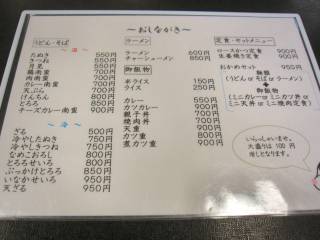 ～おしながき～
うどん・そば
～温～
たぬき 550円
きつね 550円
月見 550円
鶏南蛮 700円
肉南蛮 700円
カレー南蛮 700円
天ぷら 700円
けんちん 800円
とろろ 850円
チーズカレー南蛮 850円
～冷～
ざる 500円
冷やしたぬき 750円
冷やしきつね 750円
なめこおろし 800円
とろろせいろ 850円
ぶっかけとろろ 850円
いなかせいろ 950円
天ざる 950円
ラーメン
ラーメン 600円
チャーシューメン 850円
御飯物
半ライス 150円
ライス 250円
カレー 550円
カツカレー 900円
親子丼 700円
焼肉丼 700円
天重 900円
カツ重 900円
煮カツ重 900円
定食・セットメニュー
ロースかつ定食 900円
生姜焼き定食 900円
おかめセット 950円
麺類
(うどん or そば or ラーメン)
＋
御飯物
(ミニカレー or ミニカツ丼 or
ミニ天丼 or ミニ焼肉定食)
いらっしゃいませ。
大盛りは 100 円
増しとなります。